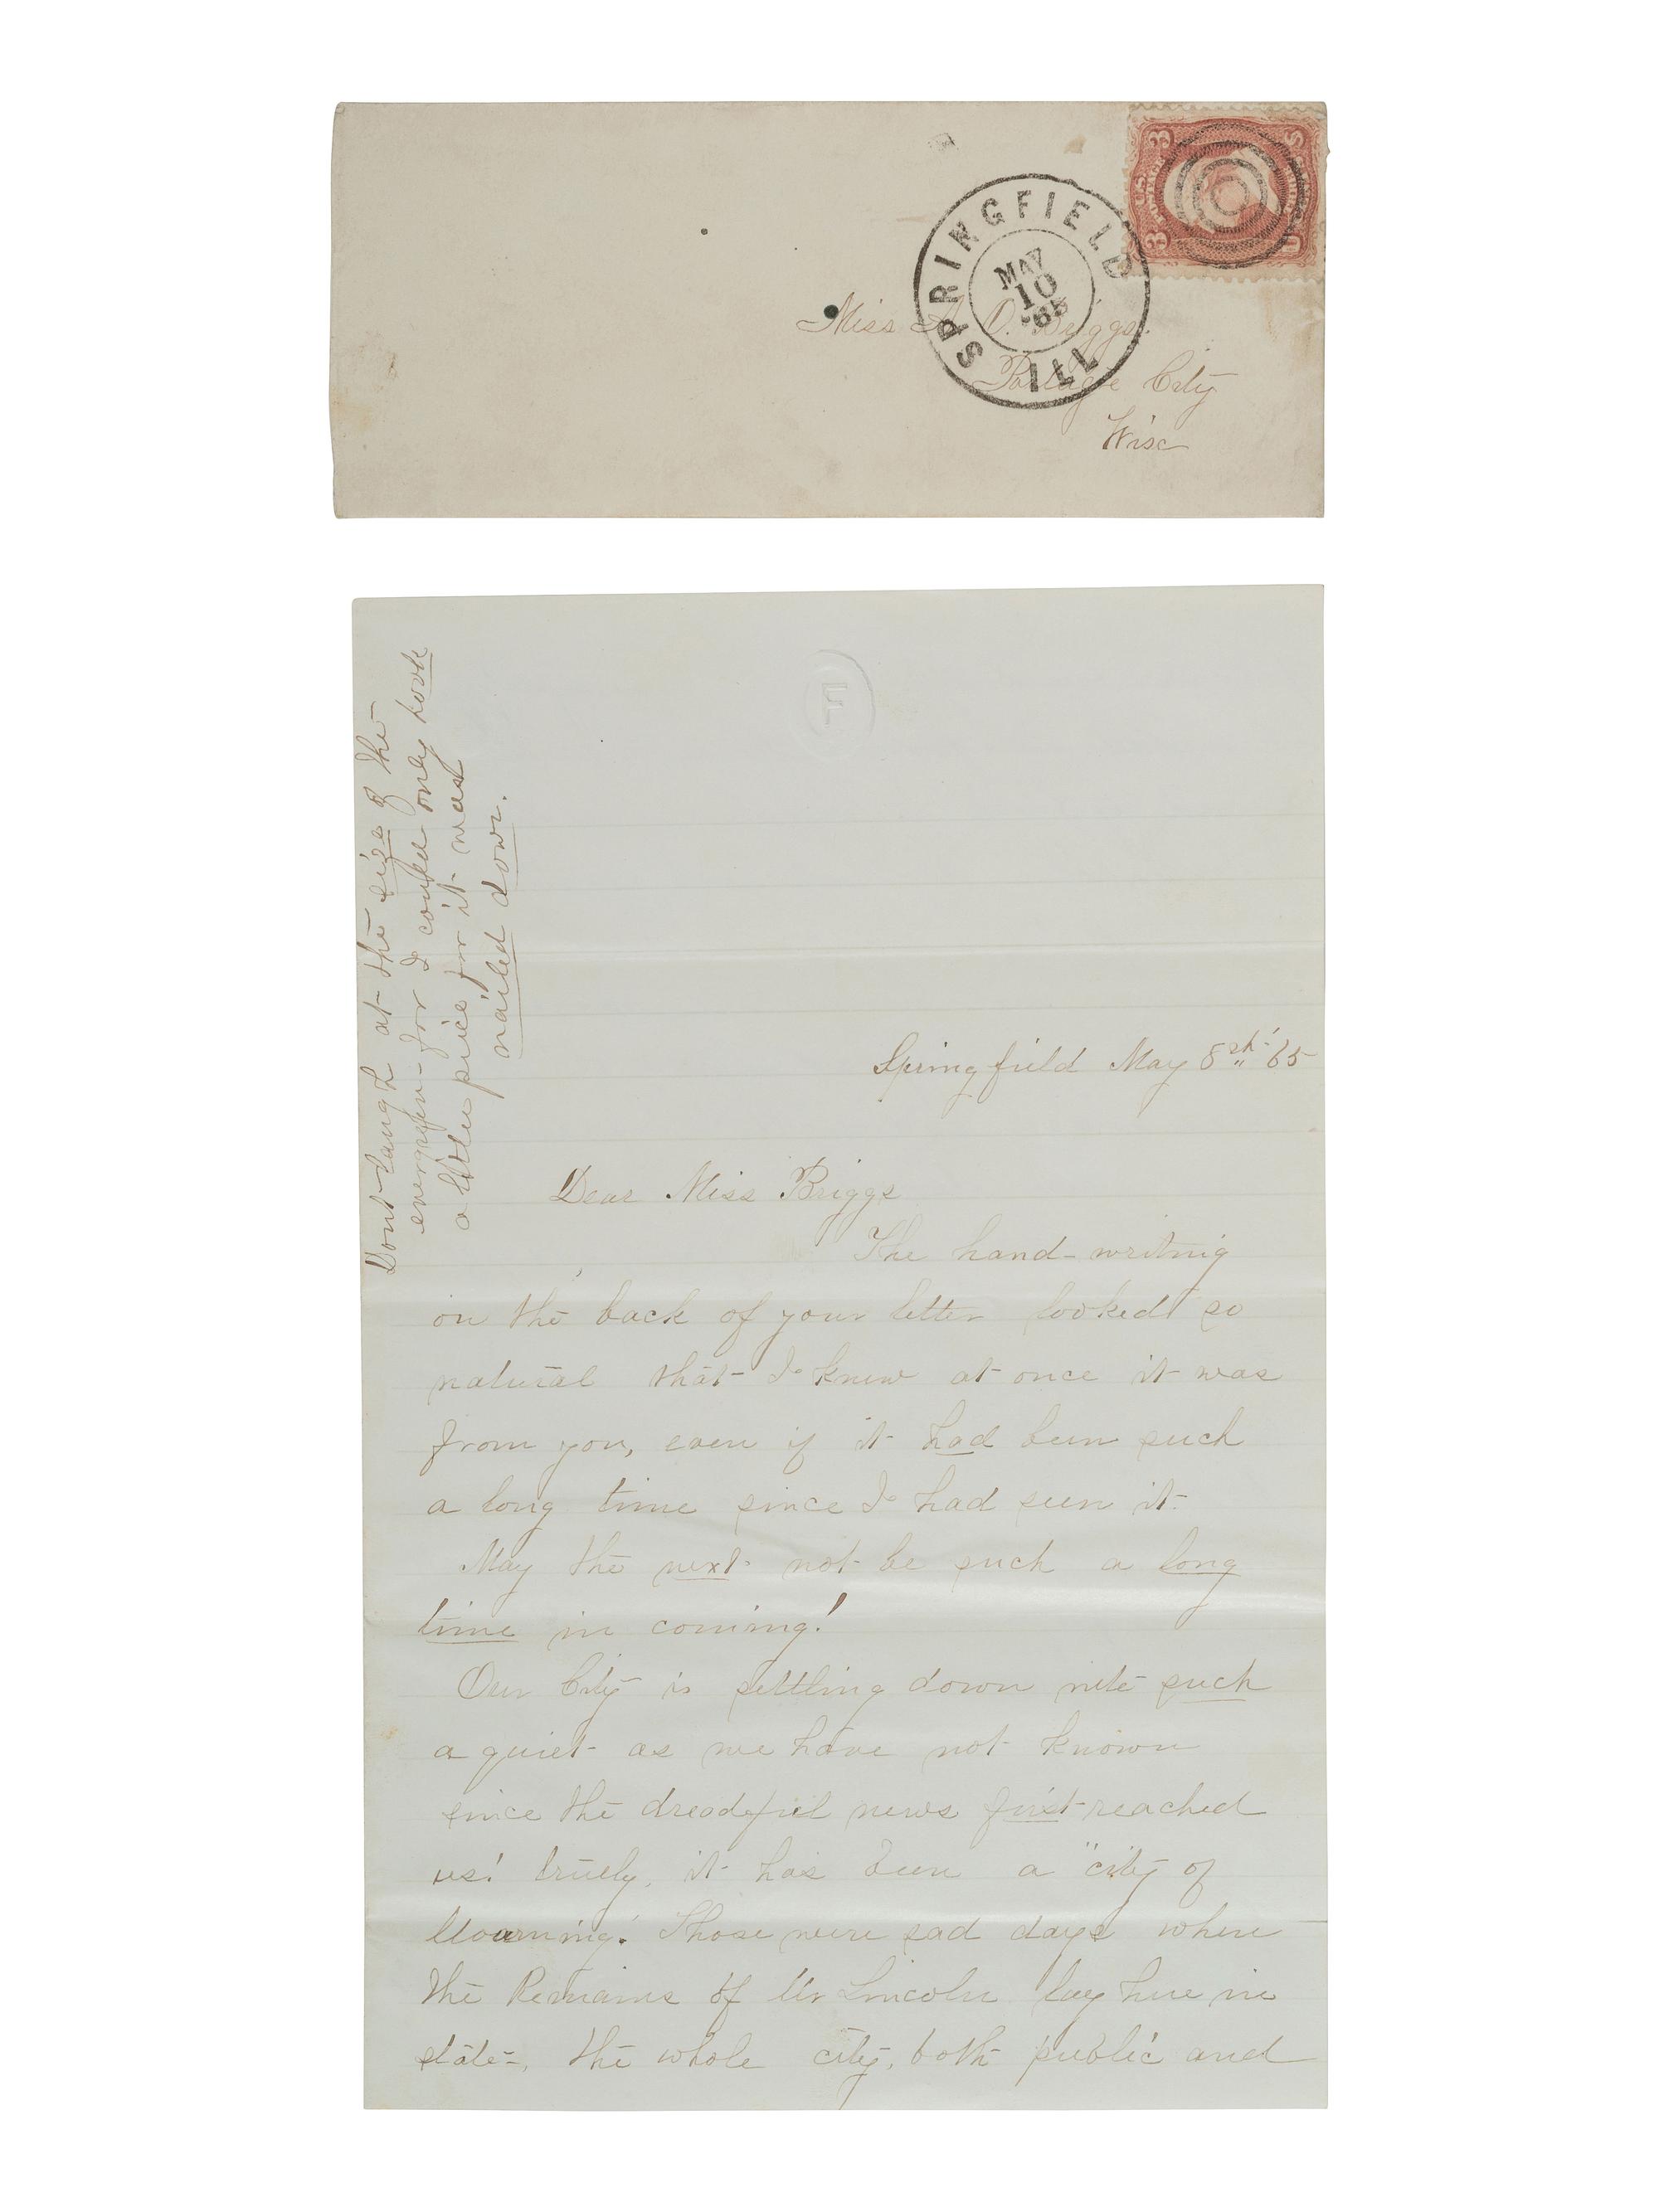 3 3
U.S. POSTAGE
SPRINGFIELD
ILL
MAY
10
'65
Miss A. O. Briggs.
Portage City
Wisc
F
Dont laugh at the size of the
evergreen for I could only hook
a little piece for it was
nailed down.
Springfield May 8th '65
Dear Miss Briggs
The hand-writing
on the back of your letter looked so
natural that I knew at once it was
from you, even if it had been such
a long time since I had seen it.
May the next not be such a long
time in coming!
Our City is settling down into such
a quiet as we have not known
since the dreadful news first reached
us! truely, it has been a "city of
Mourning! Those were sad days where
the Remains of Mr Lincoln lay here in
state, the whole city, both public and